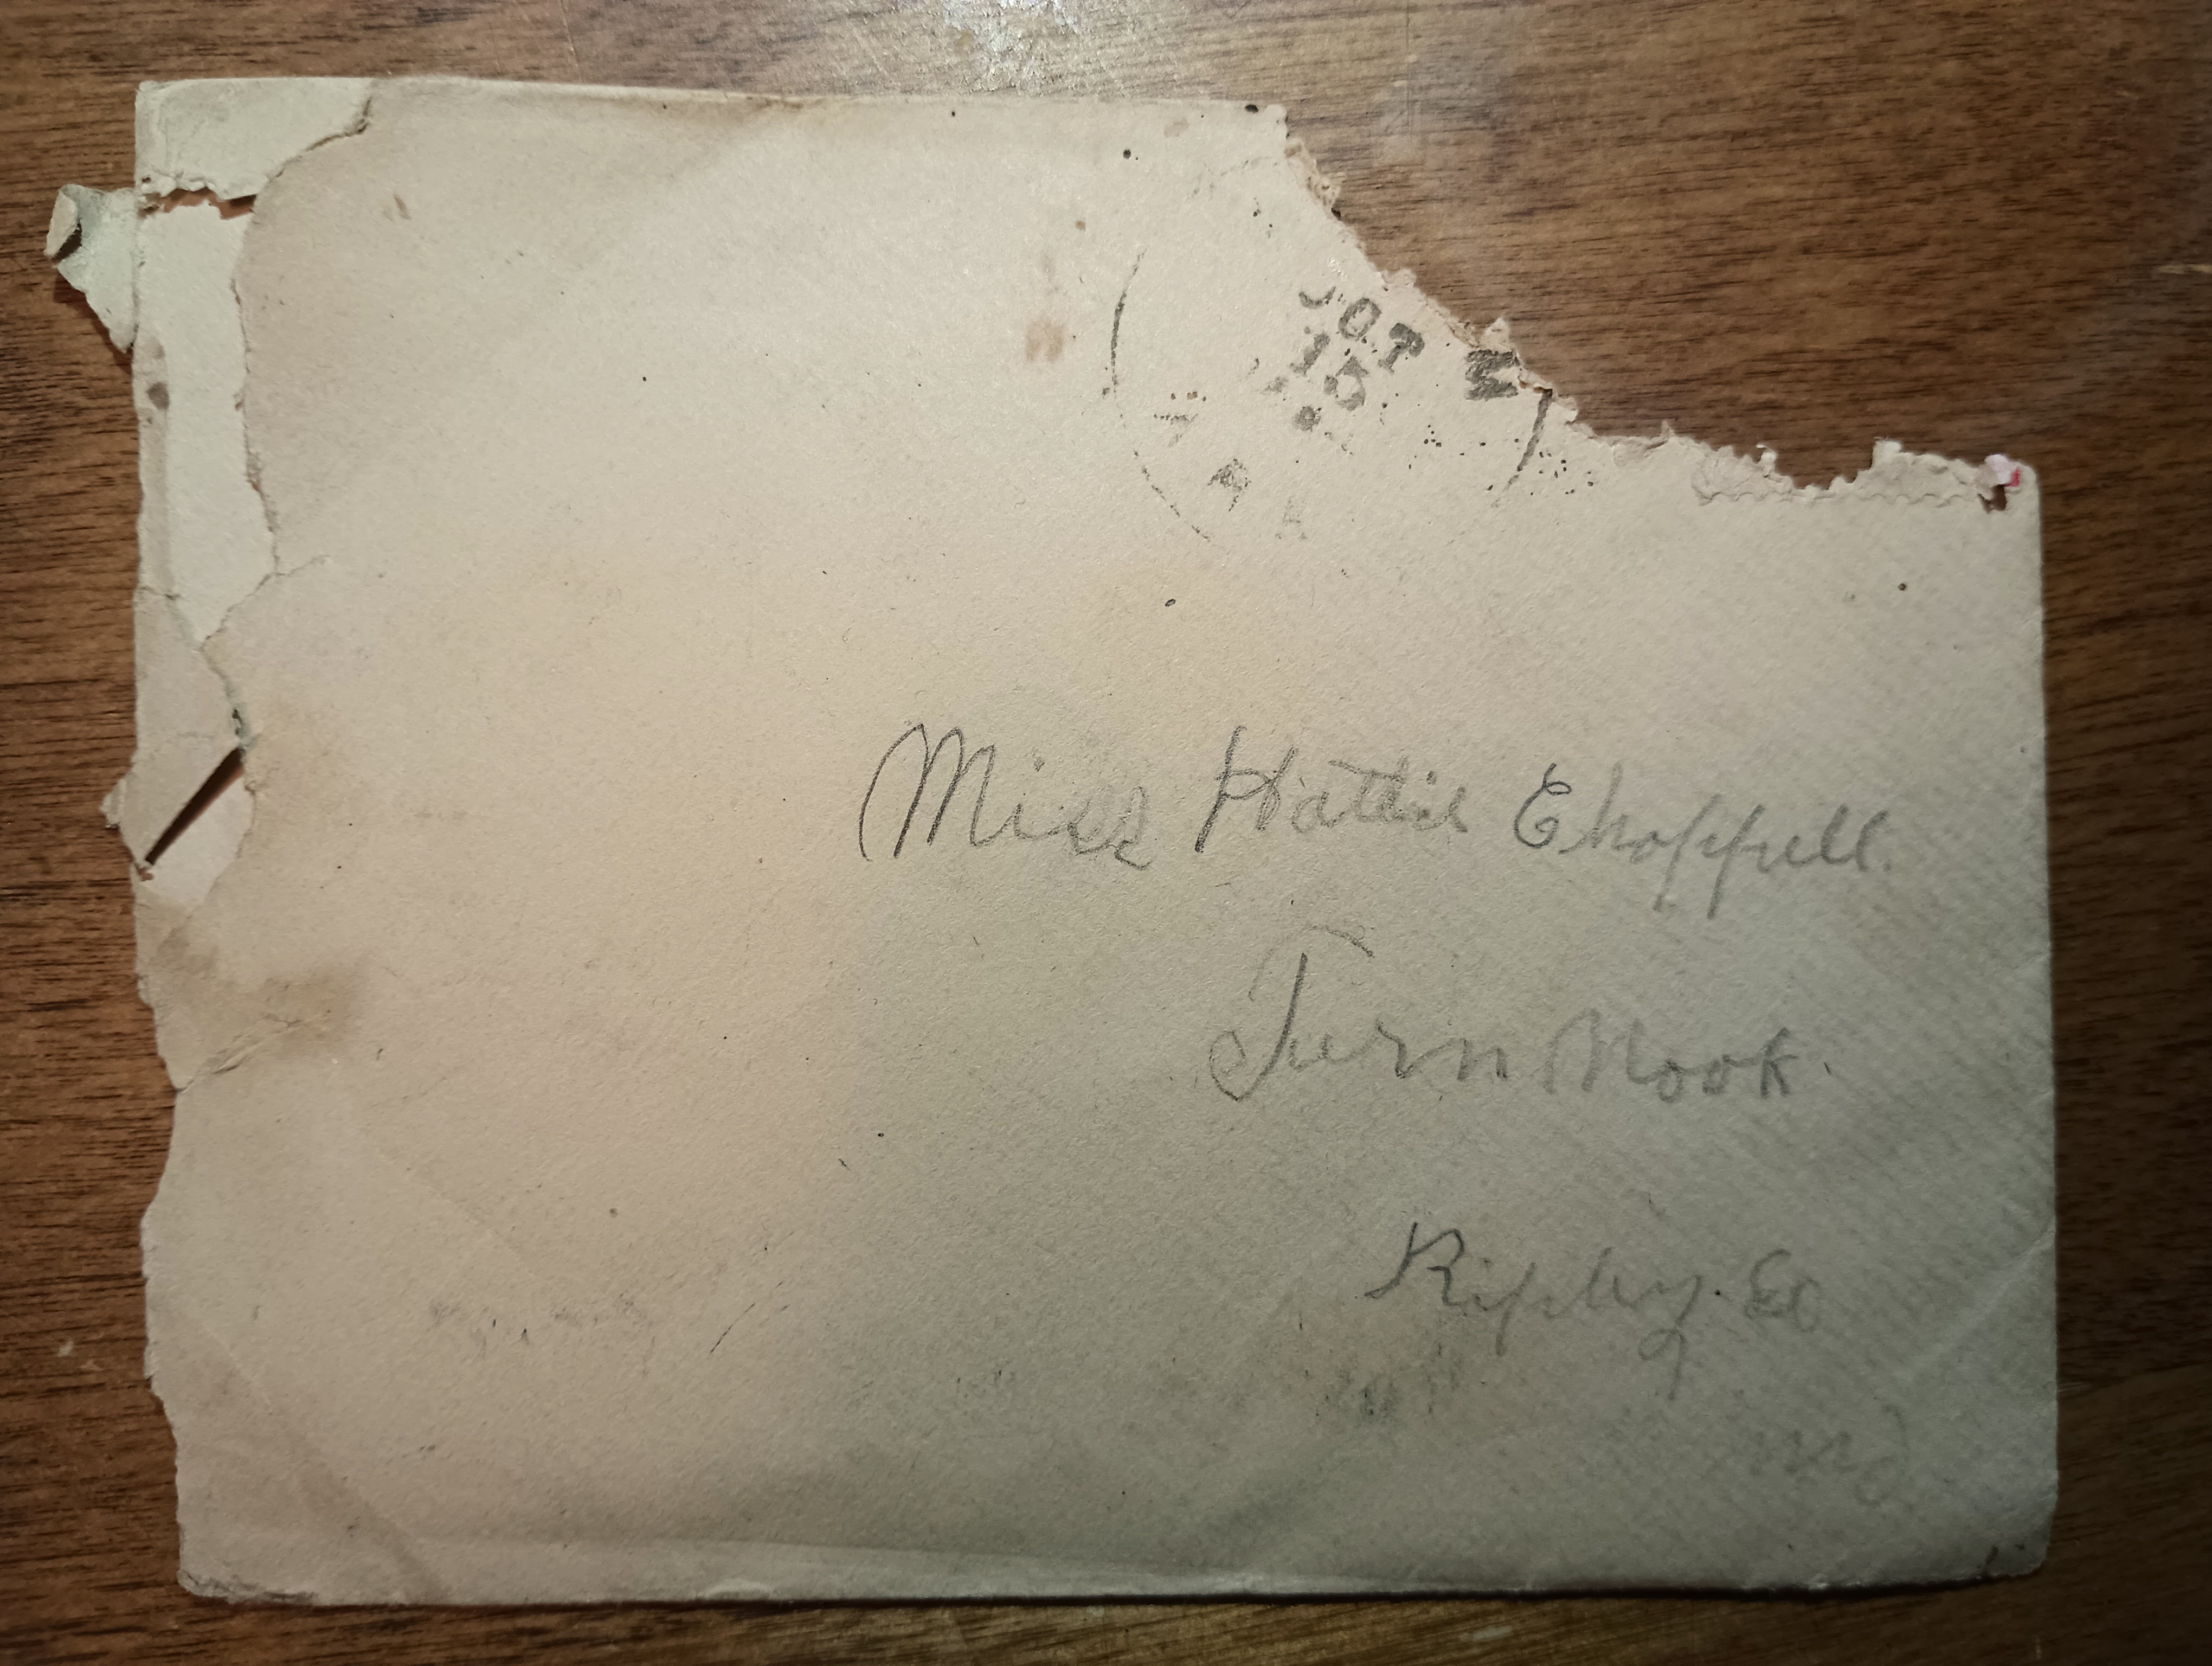 OCT
15
Miss Hattie Choppell.
Turn Nook.
Ripley. Co